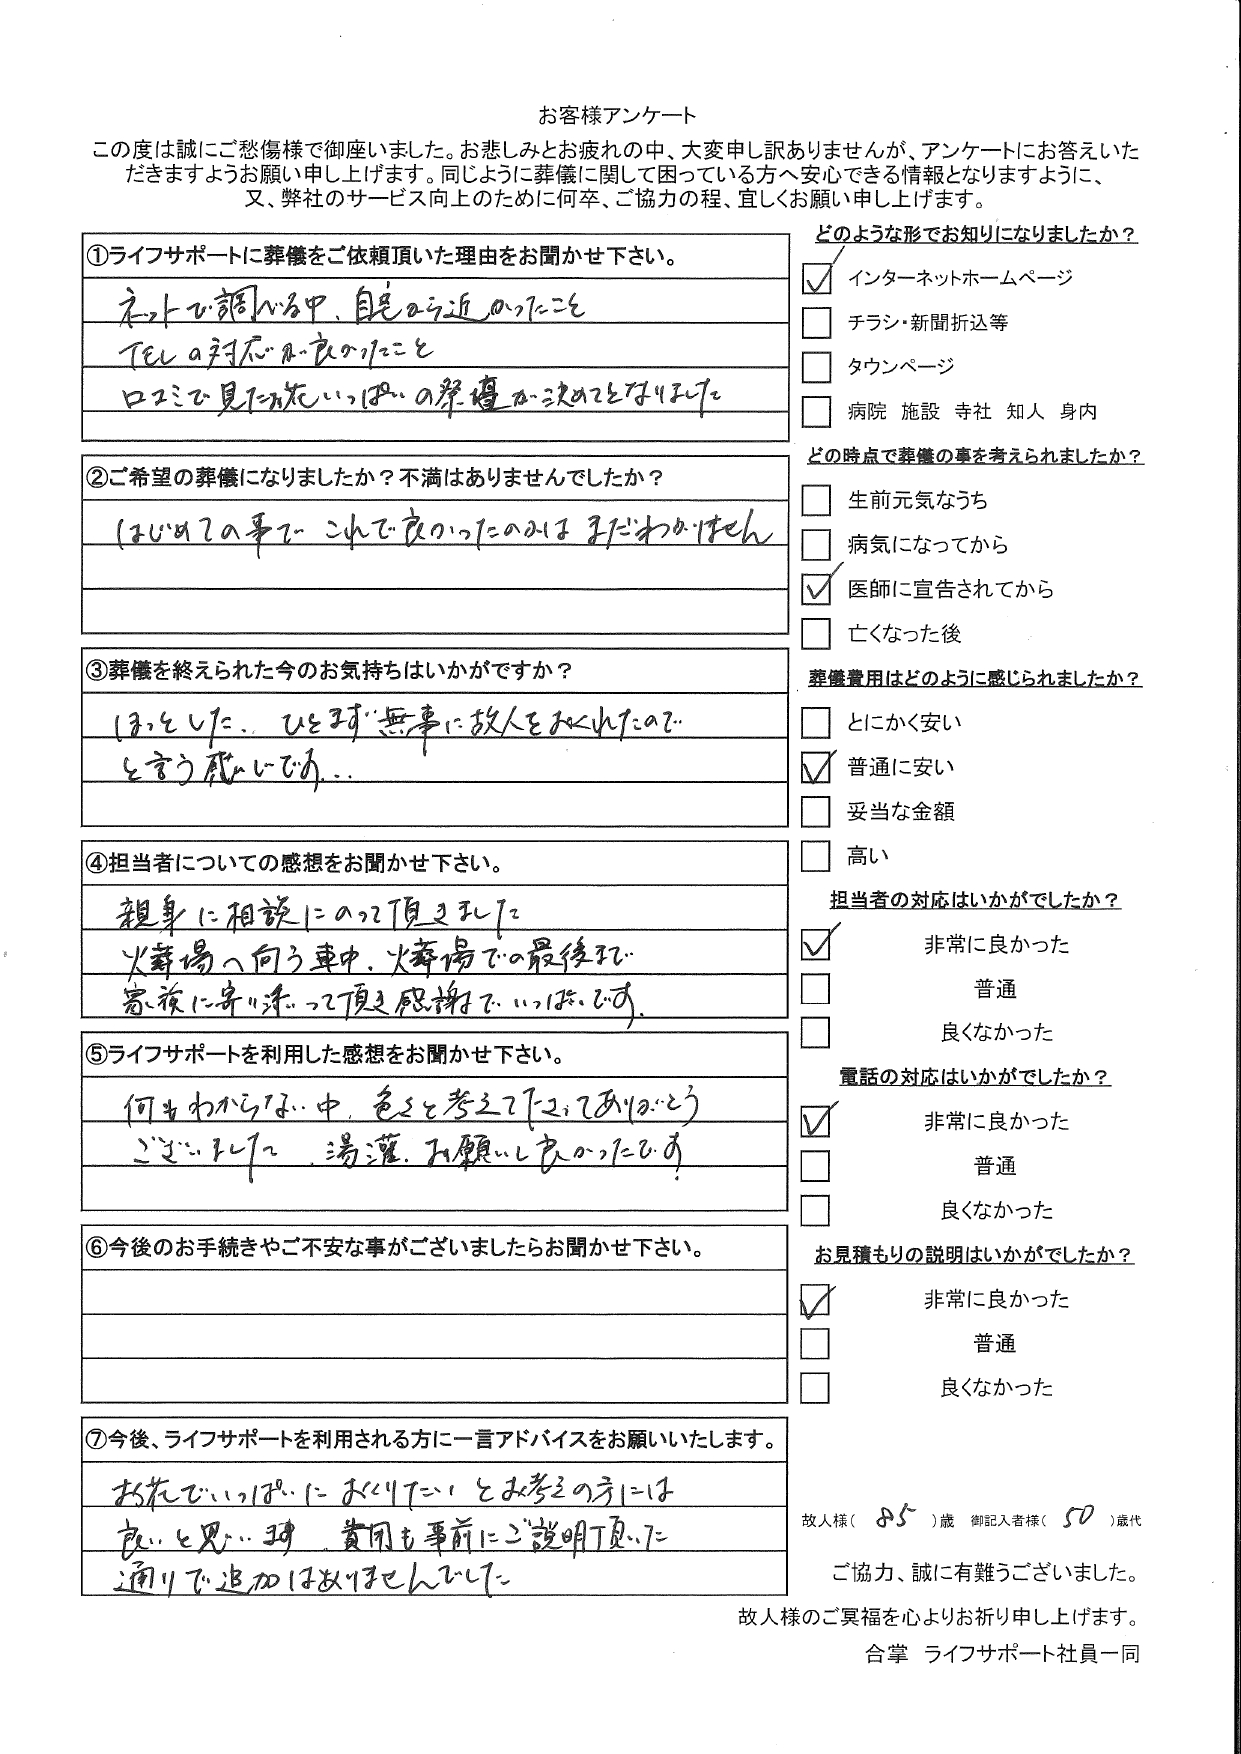 お客様アンケート
この度は誠にご愁傷様で御座いました。お悲しみとお疲れの中、大変申し訳ありませんが、アンケートにお答えいた
だきますようお願い申し上げます。同じように葬儀に関して困っている方へ安心できる情報となりますように、
又、弊社のサービス向上のために何卒、ご協力の程、宜しくお願い申し上げます。
①ライフサポートに葬儀をご依頼頂いた理由をお聞かせ下さい。
ネットで調べる中、自宅から近かったこと
TELの対応が良かったこと
口コミで見たお花いっぱいの祭壇が決めてとなりました
②ご希望の葬儀になりましたか？不満はありませんでしたか？
はじめての事で これで良かったのかは まだわかりません
③葬儀を終えられた今のお気持ちはいかがですか？
ほっとした.. ひとまず無事に故人をおくれたので
と言う感じです...
④担当者についての感想をお聞かせ下さい。
親身に相談にのって頂きました
火葬場へ向う車中、火葬場での最後まで
家族に寄り添って頂き感謝でいっぱいです.
⑤ライフサポートを利用した感想をお聞かせ下さい。
何もわからない中、色々と考えて下さってありがとう
ございました 湯灌、お願いし良かったです!
⑥今後のお手続きやご不安な事がございましたらお聞かせ下さい。
⑦今後、ライフサポートを利用される方に一言アドバイスをお願いいたします。
お花でいっぱいに おくりたい とお考えの方には
良いと思います 費用も事前にご説明頂いた
通りで追加はありませんでした
どのような形でお知りになりましたか？
インターネットホームページ
チラシ・新聞折込等
タウンページ
病院 施設 寺社 知人 身内
どの時点で葬儀の事を考えられましたか？
生前元気なうち
病気になってから
医師に宣告されてから
亡くなった後
葬儀費用はどのように感じられましたか？
とにかく安い
普通に安い
妥当な金額
高い
担当者の対応はいかがでしたか？
非常に良かった
普通
良くなかった
電話の対応はいかがでしたか？
非常に良かった
普通
良くなかった
お見積もりの説明はいかがでしたか？
非常に良かった
普通
良くなかった
故人様( 85 )歳 御記入者様( 50 )歳代
ご協力、誠に有難うございました。
故人様のご冥福を心よりお祈り申し上げます。
合掌 ライフサポート社員一同